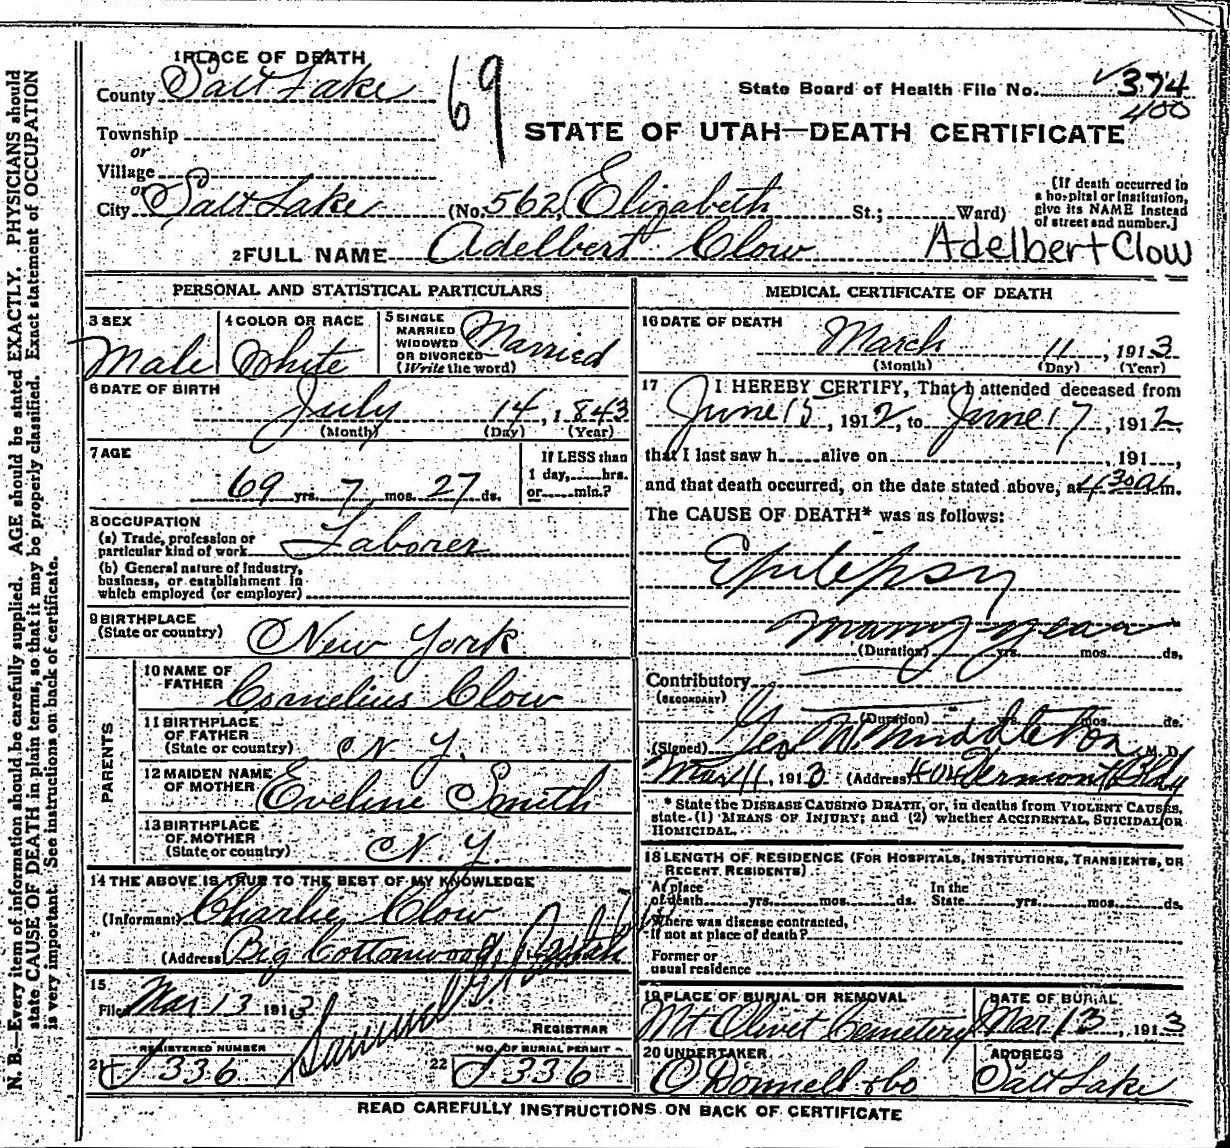 1 PLACE OF DEATH
County Salt Lake
69
State Board of Health File No. 374
400
Township
or
Village
or
City Salt Lake
STATE OF UTAH—DEATH CERTIFICATE
(No. 562 Elizabeth St.; Ward)
[If death occurred in a hospital or institution, give its NAME instead of street and number.]
2 FULL NAME Adelbert Clow
Adelbert Clow
PERSONAL AND STATISTICAL PARTICULARS
3 SEX
Male
4 COLOR OR RACE
White
5 SINGLE
MARRIED
WIDOWED
OR DIVORCED
(Write the word)
Married
6 DATE OF BIRTH
July 14, 1843
(Month) (Day) (Year)
7 AGE
69 yrs. 7 mos. 27 ds.
If LESS than
1 day, hrs.
or min.?
8 OCCUPATION
(a) Trade, profession or
particular kind of work Laborer
(b) General nature of industry,
business, or establishment in
which employed (or employer)
9 BIRTHPLACE
(State or country) New York
PARENTS
10 NAME OF
FATHER Cornelius Clow
11 BIRTHPLACE
OF FATHER
(State or country) N Y.
12 MAIDEN NAME
OF MOTHER Eveline Smith
13 BIRTHPLACE
OF MOTHER
(State or country) N. Y.
14 THE ABOVE IS TRUE TO THE BEST OF MY KNOWLEDGE
(Informant) Charlie Clow
(Address) Big Cottonwood,
15
Filed Mar 13 1913
REGISTRAR
REGISTERED NUMBER
21 J 336
NO. OF BURIAL PERMIT
22 J 336
MEDICAL CERTIFICATE OF DEATH
16 DATE OF DEATH
March 11, 1913
(Month) (Day) (Year)
17 I HEREBY CERTIFY, That I attended deceased from
June 15, 1912, to June 17, 1912,
that I last saw h alive on , 191 ,
and that death occurred, on the date stated above, at 430 a m.
The CAUSE OF DEATH* was as follows:
Epilepsy
many years
(Duration) yrs. mos. ds.
Contributory
(SECONDARY)
(Duration) yrs. mos. ds.
(Signed) Geo W Middleton M. D.
Mar 11, 1913 (Address) 404 Vermont Bldg
* State the DISEASE CAUSING DEATH, or, in deaths from VIOLENT CAUSES,
state (1) MEANS OF INJURY; and (2) whether ACCIDENTAL, SUICIDAL OR
HOMICIDAL.
18 LENGTH OF RESIDENCE (FOR HOSPITALS, INSTITUTIONS, TRANSIENTS, OR
RECENT RESIDENTS)
At place
of death yrs. mos. ds.
In the
State yrs. mos. ds.
Where was disease contracted,
if not at place of death?
Former or
usual residence
19 PLACE OF BURIAL OR REMOVAL
Mt Olivet Cemetery
DATE OF BURIAL
Mar 13, 1913
20 UNDERTAKER
O'Donnell & Co
ADDRESS
Salt Lake
READ CAREFULLY INSTRUCTIONS ON BACK OF CERTIFICATE
N. B.—Every item of information should be carefully supplied. AGE should be stated EXACTLY. PHYSICIANS should
state CAUSE OF DEATH in plain terms, so that it may be properly classified. Exact statement of OCCUPATION
is very important. See instructions on back of certificate.